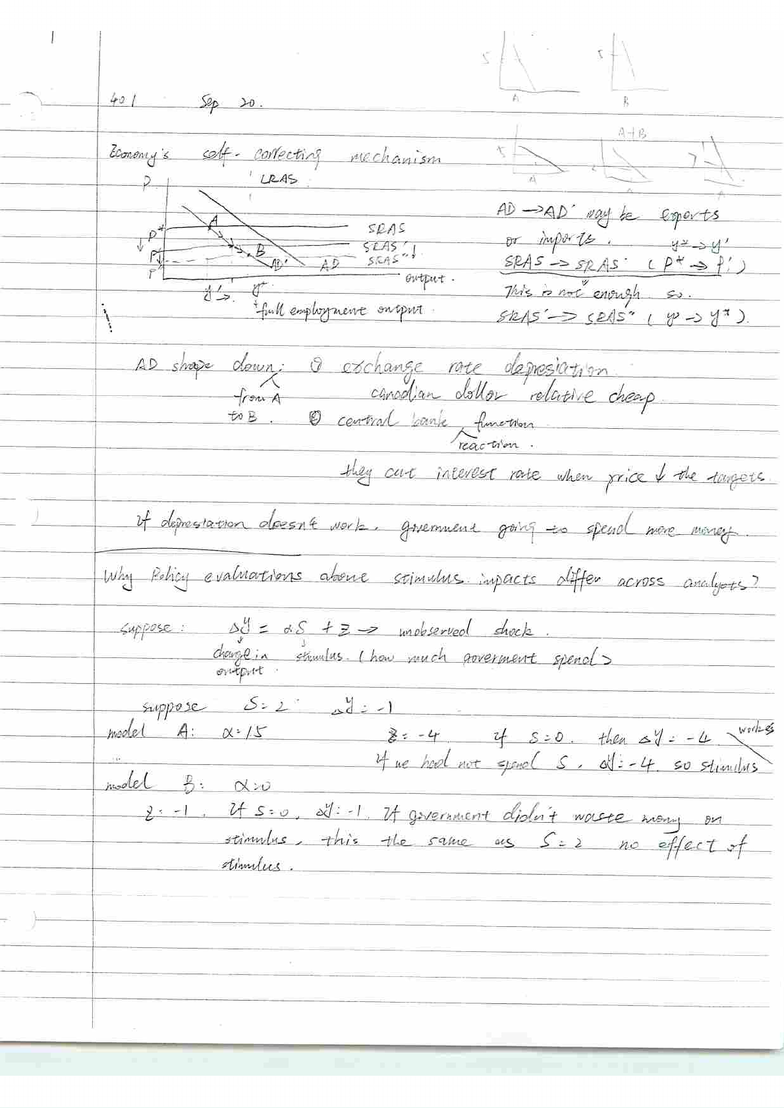 S
S
A
B
401 Sep 20.
A+B
Economy's self-correcting mechanism
A
P
LRAS
AD → AD' may be exports
A
SRAS
or imports. y* → y'
P*
SRAS'
SRAS → SRAS' (P* → P')
B
SRAS"↓
P'
AD' AD
P"
output.
This is not enough so.
y' → y*
SRAS' → SRAS" (y' → y*).
full employment output
AD shape down: ① exchange rate depresiation
from A canadian dollor relative cheap
to B. ② central bank function
reaction.
they cut interest rate when price ↓ the targets
if depresiation doesn't work. government going to spend more money.
Why Policy evaluations above stimulus impacts differ across analysts?
suppose: ΔY = αS + Z → unobserved shock.
change in stimulus. (how much goverment spend)
output
suppose S=2 ΔY=-1
model A: α=15 Z=-4 if S=0. then ΔY=-4 works
... if we had not spend S, ΔY=-4. so stimulus
model B: α=0
Z=-1. If S=0, ΔY=-1. If government didn't waste mony on
stimulus, this the same as S=2 no effect of
stimulus.